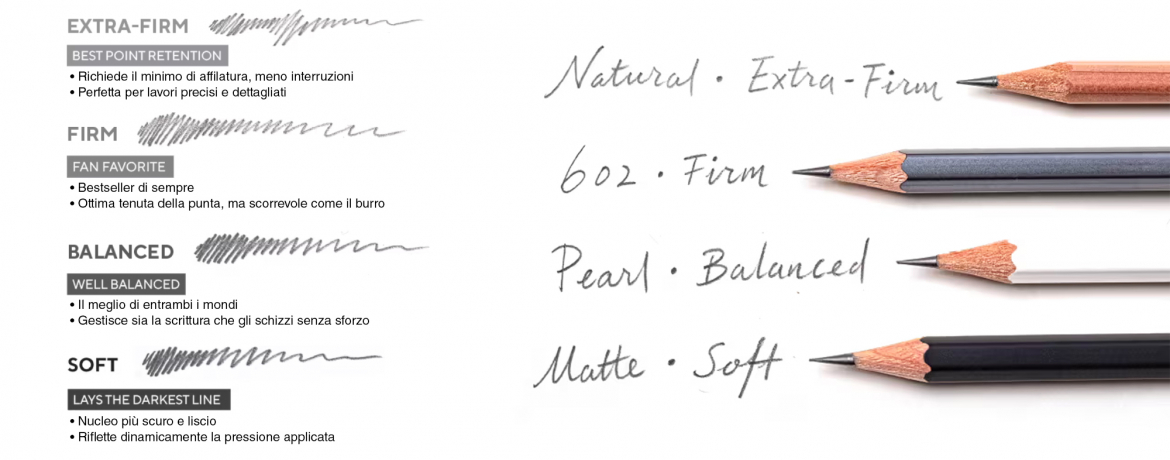 EXTRA-FIRM
BEST POINT RETENTION
• Richiede il minimo di affilatura, meno interruzioni
• Perfetta per lavori precisi e dettagliati
FIRM
FAN FAVORITE
• Bestseller di sempre
• Ottima tenuta della punta, ma scorrevole come il burro
BALANCED
WELL BALANCED
• Il meglio di entrambi i mondi
• Gestisce sia la scrittura che gli schizzi senza sforzo
SOFT
LAYS THE DARKEST LINE
• Nucleo più scuro e liscio
• Riflette dinamicamente la pressione applicata
Natural • Extra-Firm
602 • Firm
Pearl • Balanced
Matte • Soft